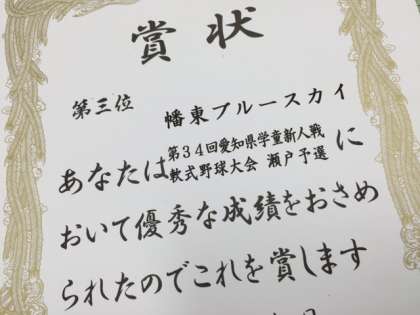 賞状
第三位 幡東ブルースカイ
あなたは第34回愛知県学童新人戦
軟式野球大会 瀬戸予選に
おいて優秀な成績をおさめ
られたのでこれを賞します